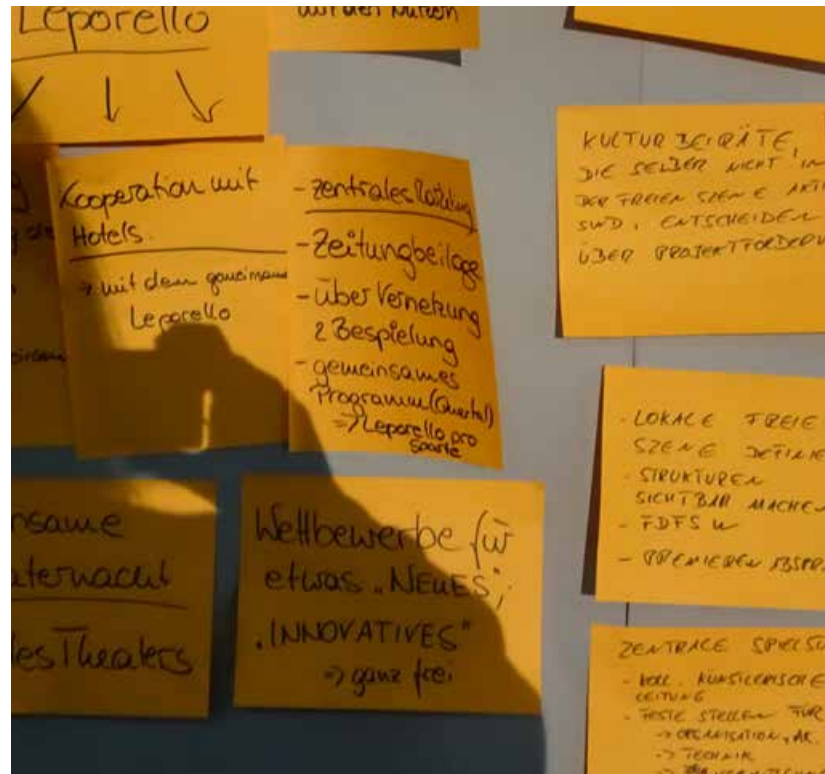 Leporello
auf den Nutzen
Kooperation mit
Hotels.
→ mit dem gemeinsame
Leporello
- zentrales
- Zeitungbeilage
- über Vernetzung
2 Bespielung
- gemeinsames
Programm (Quartal)
=> Leporello pro
Sparte
KULTURBEIRÄTE,
DIE SELBER NICHT IN
DER FREIEN SZENE AKTI
SIND, ENTSCHEIDEN
ÜBER PROJEKTFÖRDERU
- LOKALE FREIE
SZENE DEFINIE
- STRUKTUREN
SICHTBAR MACHEN
- FDFS
- PREMIEREN ABSPR
nsame
aternacht
des Theaters
Wettbewerbe für
etwas „NEUES",
„INNOVATIVES"
=> ganz frei
ZENTRALE
- KÜNSTLERISCHE
LEITUNG
- FESTE STELLEN FÜR
-> ORGANISATION,
-> TECHNIK